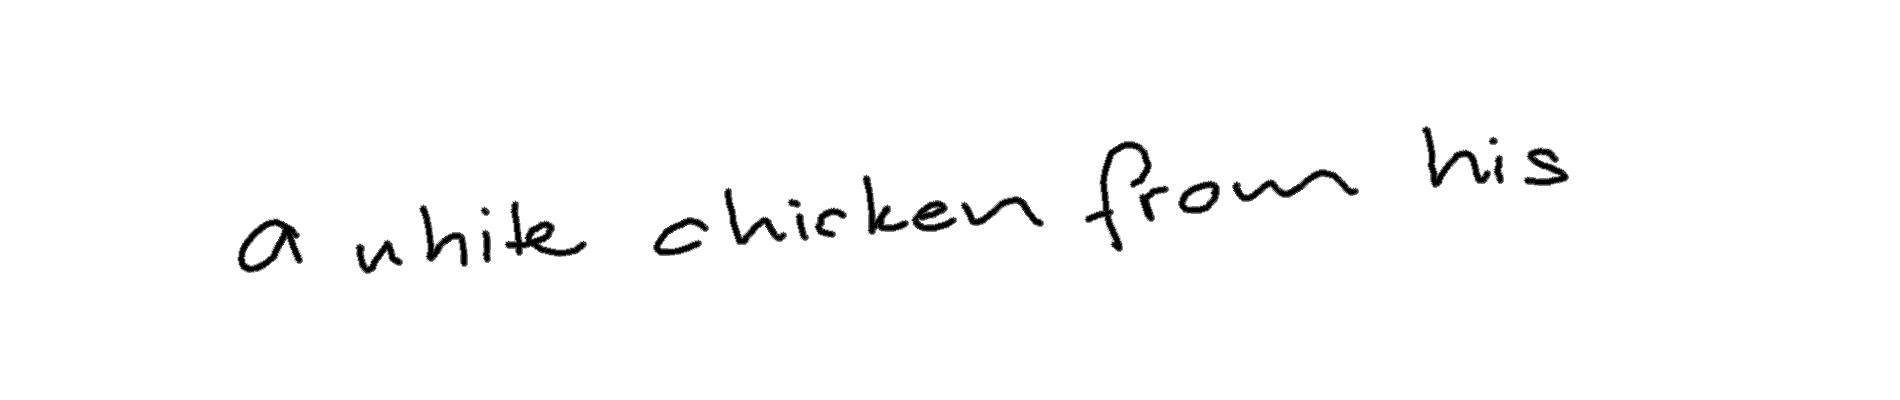 a white chicken from his